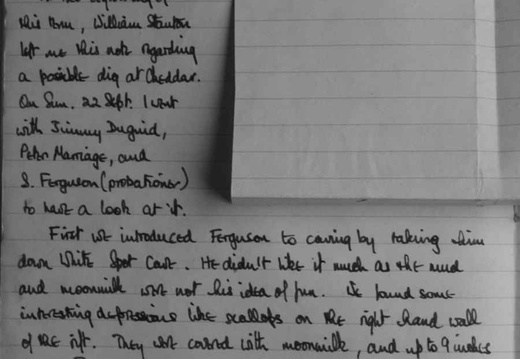 this term, William Stanton
left me this note regarding
a possible dig at Cheddar.
On Sun. 22 Sept. I went
with Jimmy Duguid,
Peter Marriage, and
S. Ferguson (probationer)
to have a look at it.
First we introduced Ferguson to caving by taking him
down White Spot Cave. He didn't like it much as the mud
and moonmilk were not his idea of fun. We found some
interesting depressions like scallops on the right hand wall
of the rift. They were covered with moonmilk, and up to 9 inches